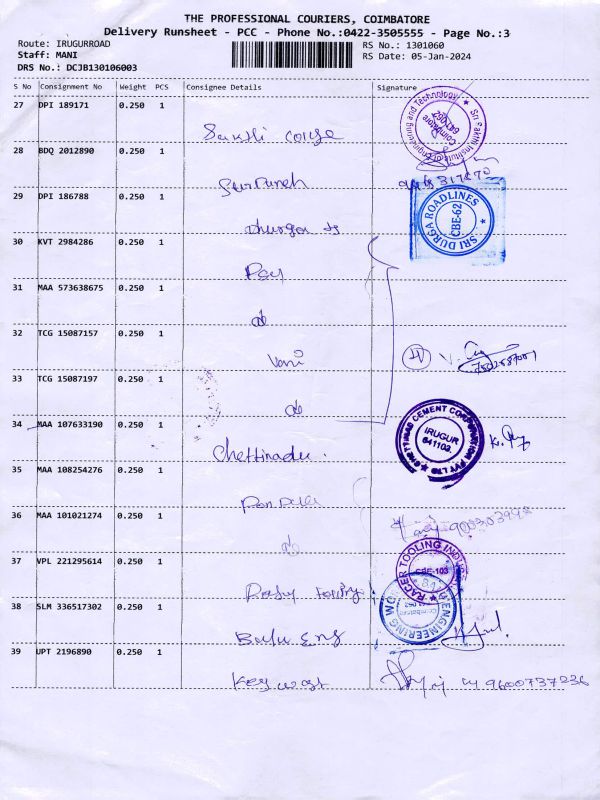 THE PROFESSIONAL COURIERS, COIMBATORE
Delivery Runsheet - PCC - Phone No.:0422-3505555 - Page No.:3
Route: IRUGURROAD
Staff: MANI
DRS No.: DCJB130106003
RS No.: 1301060
RS Date: 05-Jan-2024
S No Consignment No Weight PCS Consignee Details Signature
27 DPI 189171 0.250 1
Sakthi College
Sri Sakthi Institute of Engineering and Technology
Coimbatore
641 062
28 BDQ 2012890 0.250 1
29 DPI 186788 0.250 1
Dhurga
SRI DURGA ROADLINES
CBE-62
30 KVT 2984286 0.250 1
31 MAA 573638675 0.250 1
do
32 TCG 15087157 0.250 1
Vani
33 TCG 15087197 0.250 1
do
34 MAA 107633190 0.250 1
Chettinadu.
CHETTINAD CEMENT CORPORATION PVT LTD
IRUGUR
641103.
35 MAA 108254276 0.250 1
36 MAA 101021274 0.250 1
do
37 VPL 221295614 0.250 1
RACER TOOLING
CBE-103
38 SLM 336517302 0.250 1
Balu Eng
ENGINEERING
39 UPT 2196890 0.250 1
Key west
9600737236